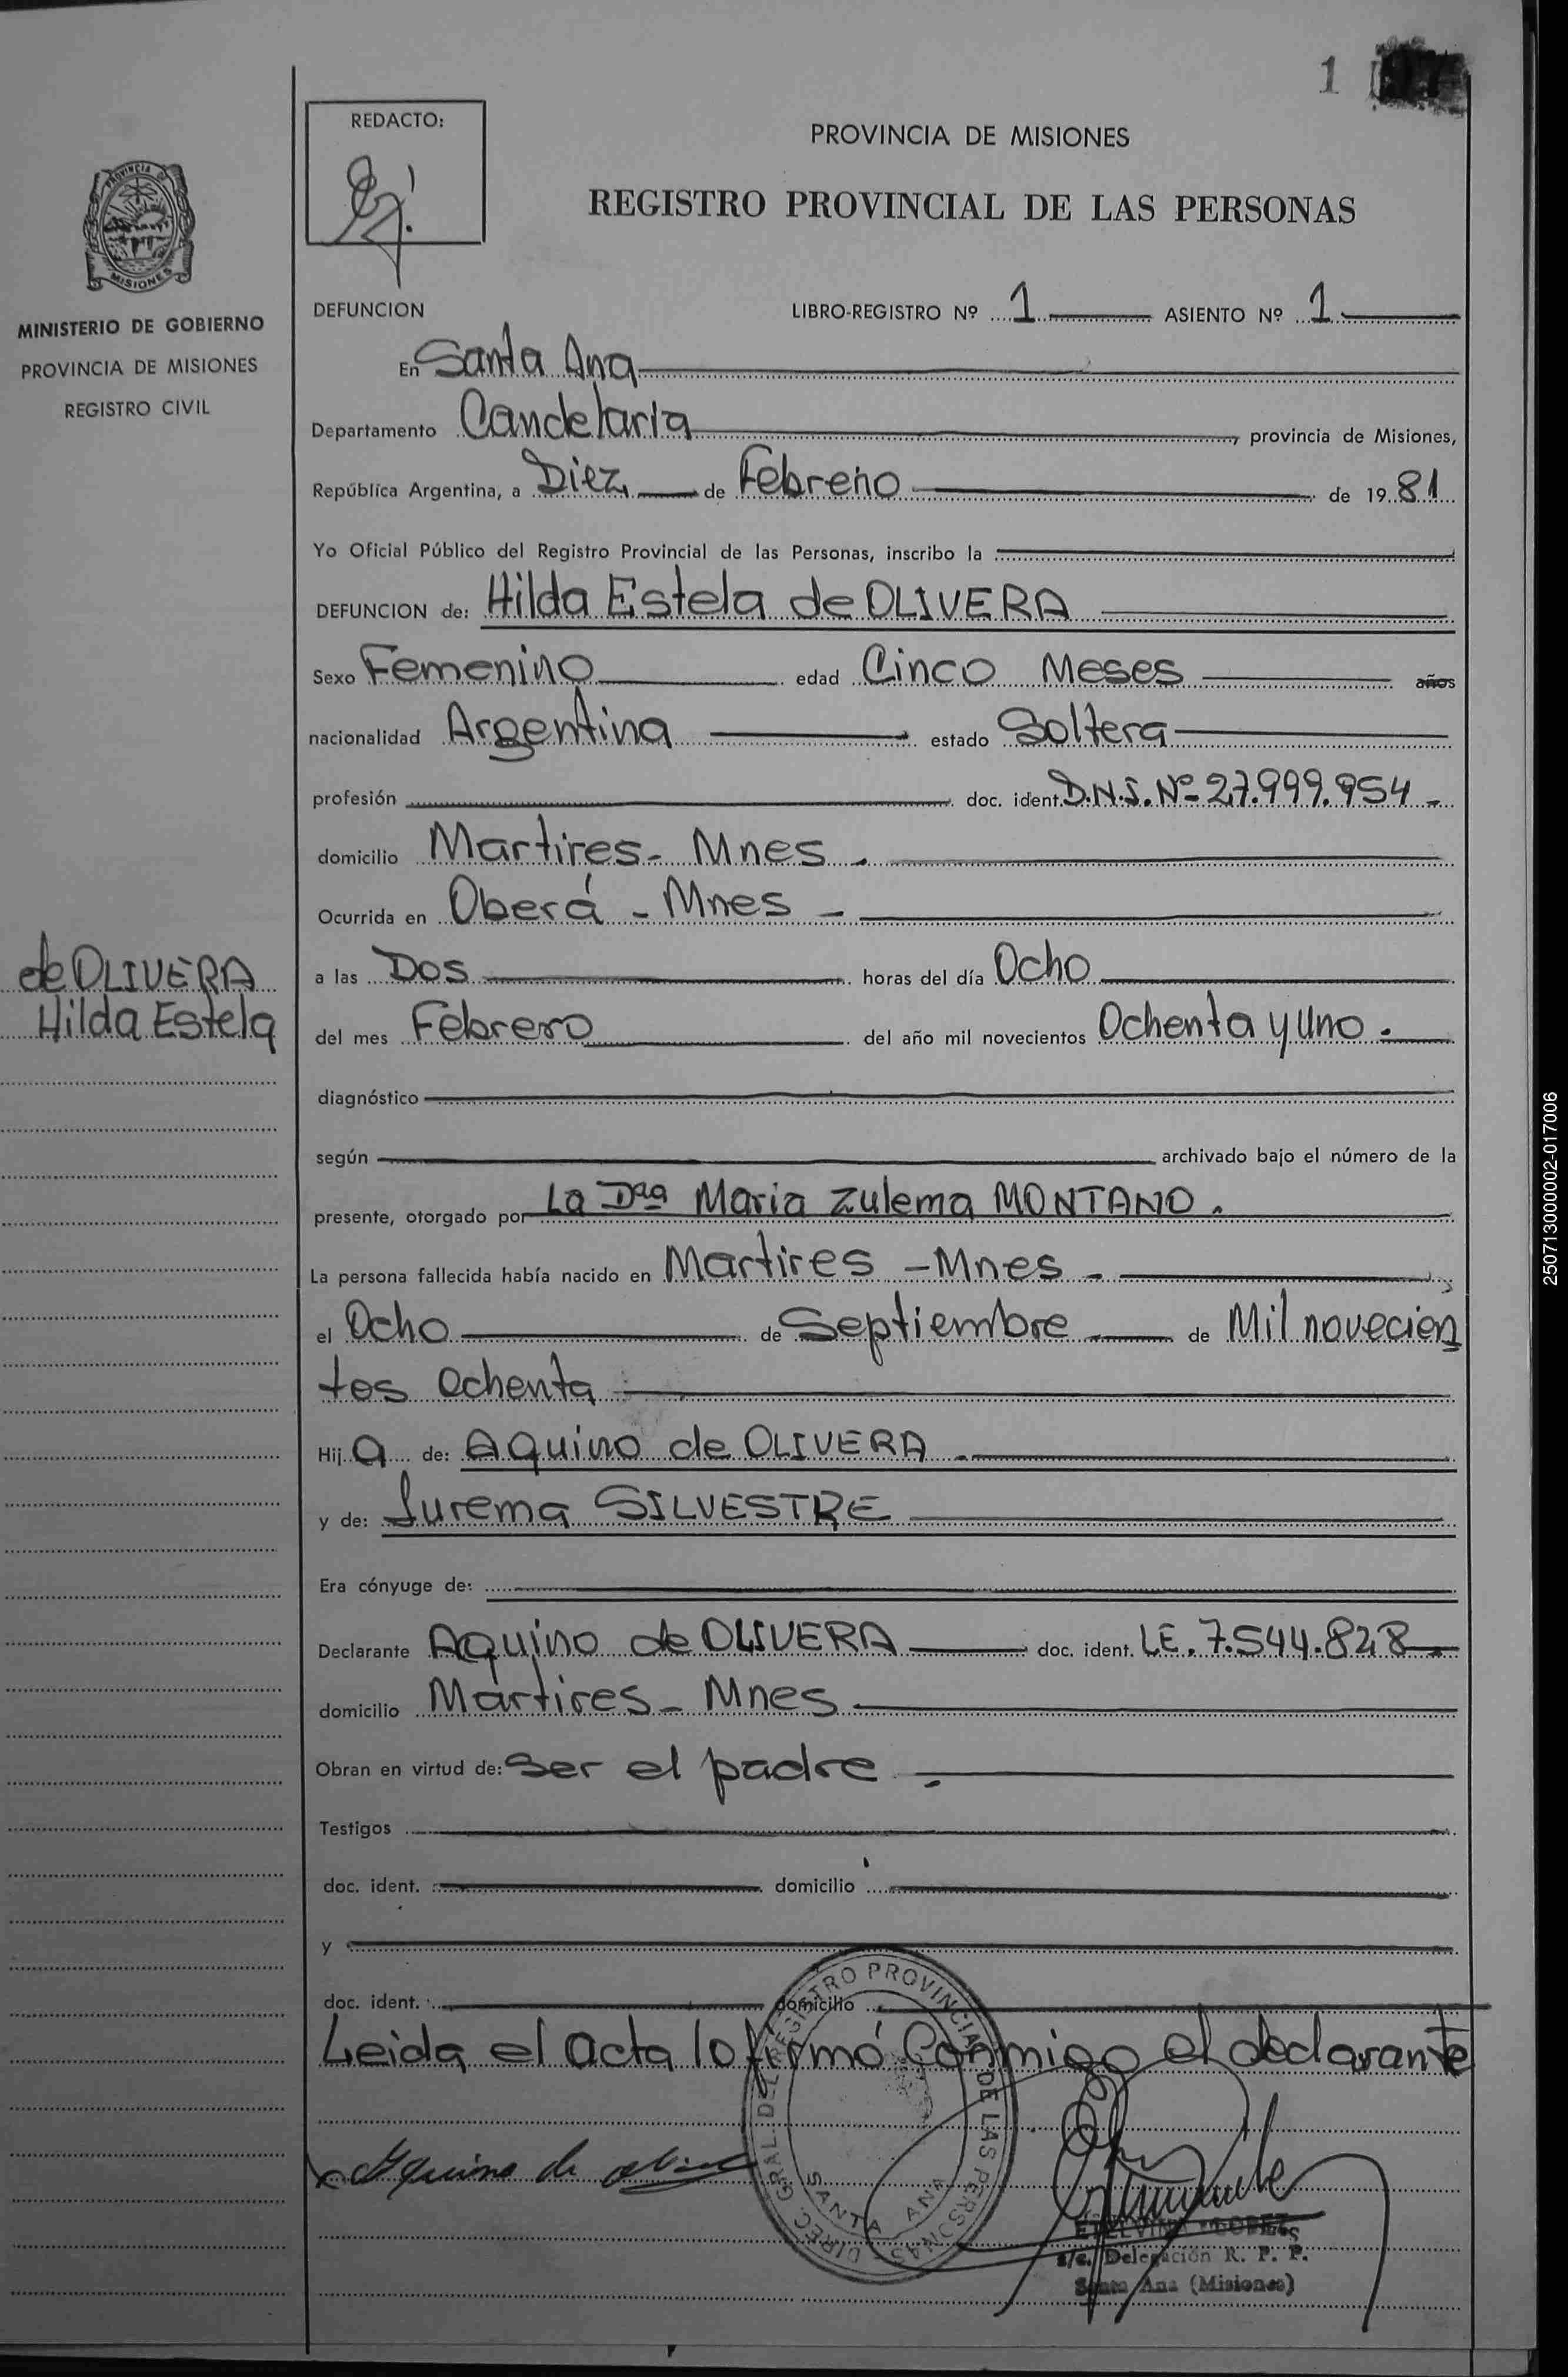 1
REDACTO:
PROVINCIA DE MISIONES
REGISTRO PROVINCIAL DE LAS PERSONAS
PROVINCIA DE
MISIONES
MINISTERIO DE GOBIERNO
PROVINCIA DE MISIONES
REGISTRO CIVIL
DEFUNCION LIBRO-REGISTRO Nº 1 ASIENTO Nº 1
En Santa Ana
Departamento Candelaria, provincia de Misiones,
República Argentina, a Diez de Febrero de 19 81
Yo Oficial Público del Registro Provincial de las Personas, inscribo la
DEFUNCION de: Hilda Estela de OLIVERA
Sexo Femenino edad Cinco Meses años
nacionalidad Argentina estado Soltera
profesión doc. ident. D.N.I. Nº 27.999.954
domicilio Martires - Mnes.
Ocurrida en Oberá - Mnes -
de OLIVERA
Hilda Estela
a las Dos horas del día Ocho
del mes Febrero del año mil novecientos Ochenta y Uno.
diagnóstico
según archivado bajo el número de la
presente, otorgado por La Dra Maria Zulema MONTANO.
La persona fallecida había nacido en Martires - Mnes -
el Ocho de Septiembre de Mil novecien
tos ochenta
Hija de: Aquino de OLIVERA.
y de: Jurema SILVESTRE
Era cónyuge de:
Declarante Aquino de OLIVERA doc. ident. LE. 7.544.828
domicilio Martires - Mnes
Obran en virtud de: Ser el padre.
Testigos
doc. ident. domicilio
y
doc. ident. domicilio
Leida el acta lo firmó Conmigo el declarante
Aquino de
DIREC. GRAL. DEL REGISTRO PROVINCIAL DE LAS PERSONAS
SANTA ANA
s/c. Delegación R. P. P.
Santa Ana (Misiones)
250713000002-017006